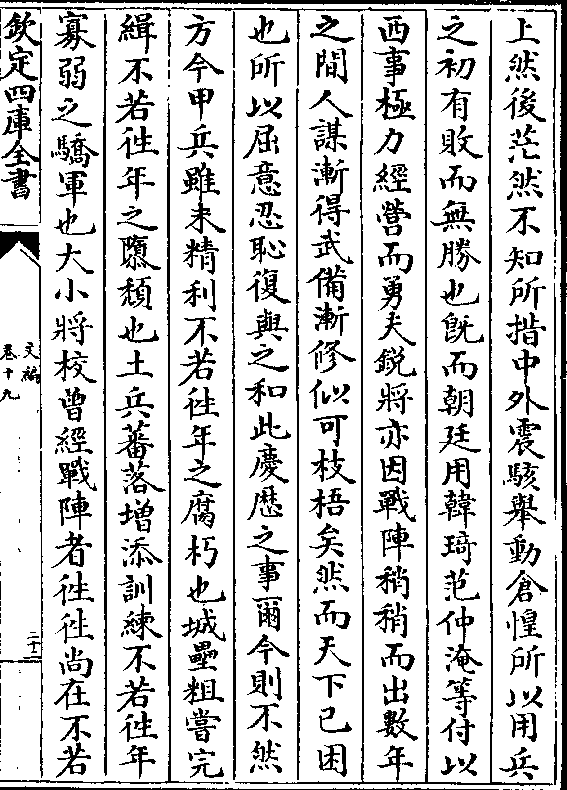 上然後茫然不知所措中外震駭舉動倉惶所以用兵
之初有敗而無勝也旣而朝廷用韓琦范仲淹等付以
西事極力經營而勇夫鋭將亦因戰陣稍稍而出數年
之間人謀漸得武備漸修似可枝梧矣然而天下已困
也所以屈意忍恥復與之和此慶厯之事爾今則不然
方今甲兵雖未精利不若徃年之腐朽也城壘粗嘗完
緝不若徃年之隳頽也土兵蕃落增添訓練不若徃年
寡弱之驕軍也大小將校曾經戰陣者徃徃尚在不若
欽定四庫全書
文編
卷十九
二十一